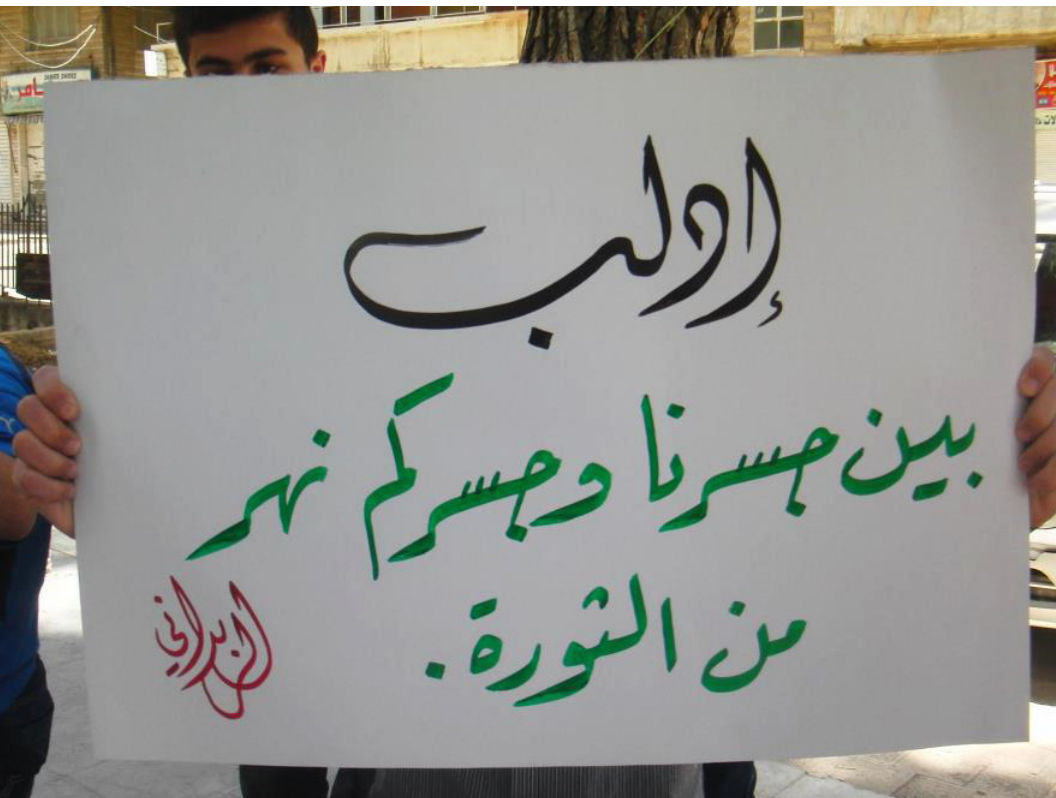 إدلب
بين جسرنا وجسركم نهر
من الثورة.
الزبداني